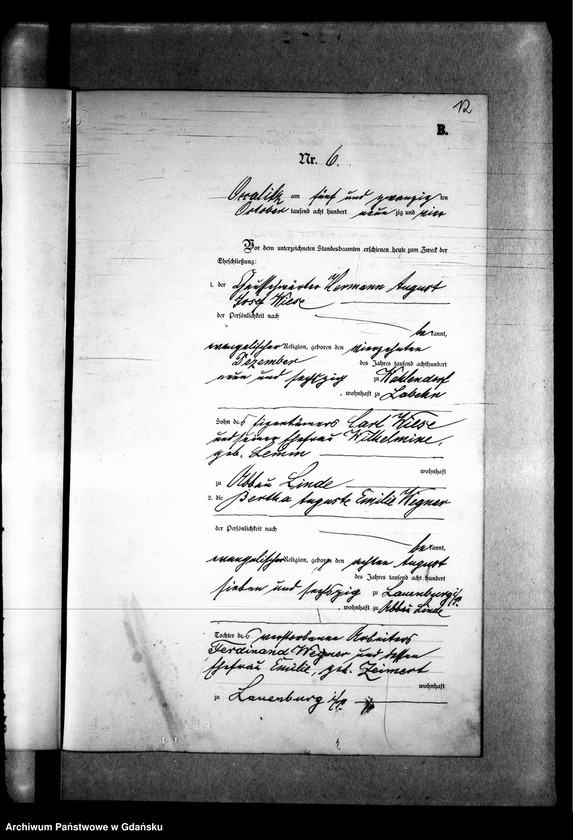 12
B.
Nr. 6.
am fünf und zwanzig ten
October tausend acht hundert neun zig und vier
Vor dem unterzeichneten Standesbeamten erschienen heute zum Zweck der
Eheschließung:
1. der Hermann August
Josef Wiese
der Persönlichkeit nach
be kannt,
evangelischer Religion, geboren den vierzehnten
Dezember des Jahres tausend achthundert
neun und sechszig zu
, wohnhaft zu Labehn
Sohn des Eigentümers Carl Wiese
und seiner Ehefrau Wilhelmine,
geb. Lemm
wohnhaft
zu Abbau Linde
2. die Bertha Auguste Emilie Wegner
der Persönlichkeit nach
be kannt,
evangelischer Religion, geboren den achten August
des Jahres tausend acht hundert
sieben und sechszig zu Lauenburg i/P.
, wohnhaft zu Abbau Linde
Tochter des verstorbenen Arbeiters
Ferdinand Wegner und dessen
Ehefrau Emilie, geb. Zeimert
wohnhaft
zu Lauenburg i/P.
Archiwum Państwowe w Gdańsku